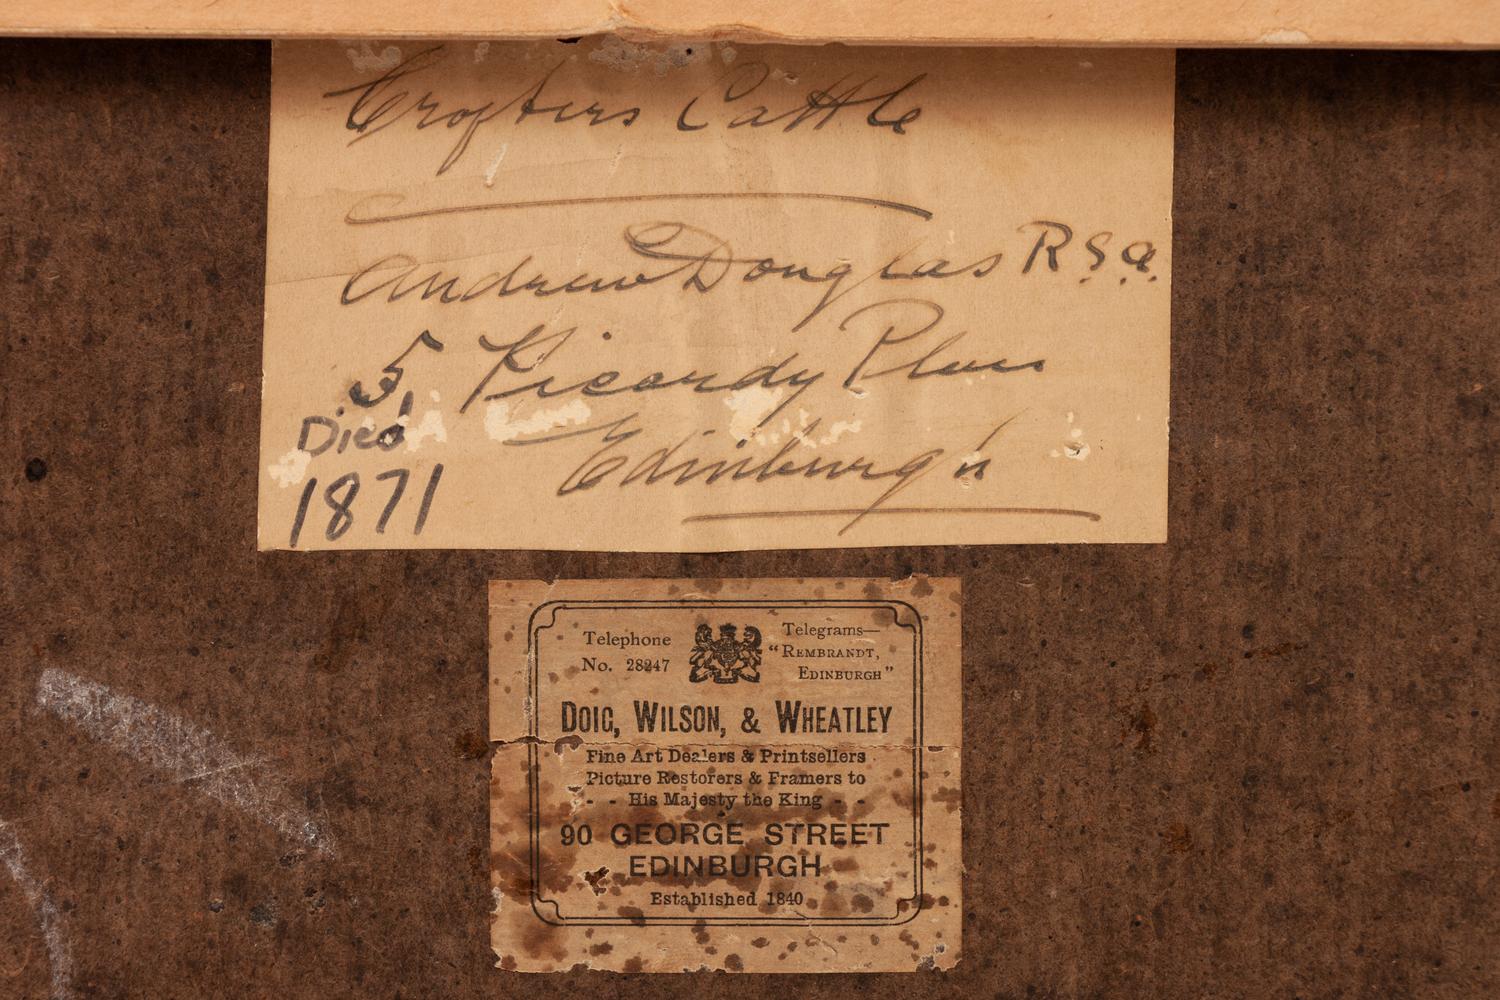 Crofters Cattle
Andrew Douglas R.S.A.
5, Picardy Place
Died
1871
Edinburgh
Telephone
No. 28247
Telegrams—
"REMBRANDT,
EDINBURGH"
DOIG, WILSON, & WHEATLEY
Fine Art Dealers & Printsellers
Picture Restorers & Framers to
- - His Majesty the King - -
90 GEORGE STREET
EDINBURGH
Established 1840